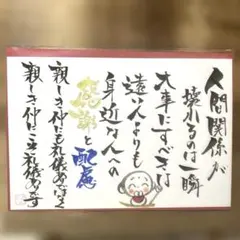 人間関係が
壊れるのは一瞬
大事にすべきは
遠い人よりも
身近な人への
感謝と配慮
親しき仲にも礼儀ありでなく
親しき仲にこそ礼儀あります